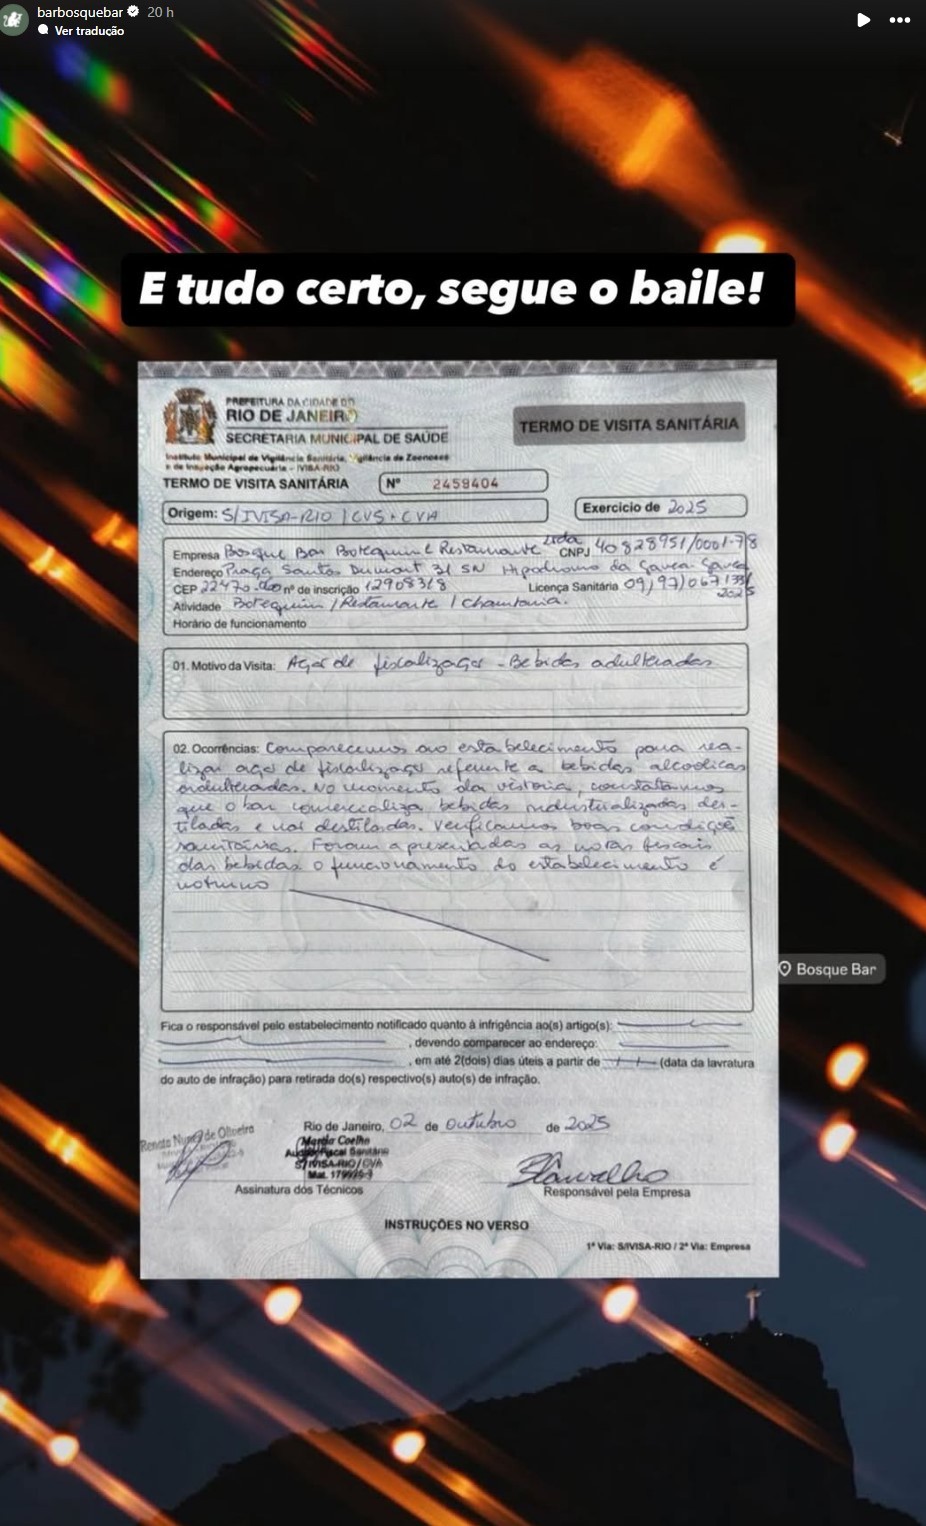 barbosquebar 20 h
Ver tradução
E tudo certo, segue o baile!
PREFEITURA DA CIDADE DO
RIO DE JANEIRO
SECRETARIA MUNICIPAL DE SAÚDE
Instituto Municipal de Vigilância Sanitária, Vigilância de Zoonoses
e de Inspeção Agropecuária - IVISA-RIO
TERMO DE VISITA SANITÁRIA
TERMO DE VISITA SANITÁRIA
Nº 2459404
Origem: S/IVISA-RIO / CVS + CVA
Exercicio de 2025
Empresa Bosque Bar Botequim e Restaurante Ltda CNPJ 40828951/0001-78
Endereço Praça Santos Dumont 31 SN Hipódromo da Gávea Gávea
CEP 22470- nº de inscrição 12908318 Licença Sanitária 09/97/067
2025
Atividade Botequim / Restaurante /
Horário de funcionamento
01. Motivo da Visita: Ação de fiscalização - Bebidas adulteradas
02. Ocorrências: Comparecemos ao estabelecimento para rea-
lizar ação de fiscalização referente a bebidas alcoólicas
adulteradas. No momento da vistoria, constatamos
que o bar comercializa bebidas industrializadas des-
tiladas e não destiladas. Verificamos boas condições
sanitárias. Foram apresentadas as notas fiscais
das bebidas. O funcionamento do estabelecimento é
noturno
Bosque Bar
Fica o responsável pelo estabelecimento notificado quanto à infrigência ao(s) artigo(s):
, devendo comparecer ao endereço:
, em até 2(dois) dias úteis a partir de / / (data da lavratura
do auto de infração) para retirada do(s) respectivo(s) auto(s) de infração.
Rio de Janeiro, 02 de outubro de 2025
Renata Nunes de Oliveira
Coelho
Auditor Fiscal Sanitário
S/IVISA-RIO/CVA
Assinatura dos Técnicos
Responsável pela Empresa
INSTRUÇÕES NO VERSO
1ª Via: S/IVISA-RIO / 2ª Via: Empresa